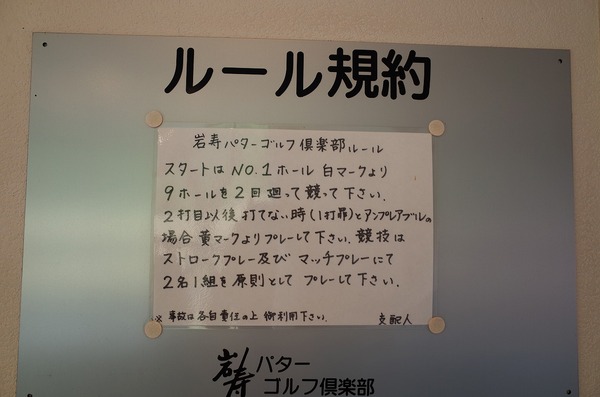 ルール規約
岩寿パターゴルフ倶楽部ルール
スタートはNO.1ホール 白マークより
9ホールを2回廻って競って下さい.
2打目以後打てない時(1打罪)とアンプレアブルの
場合黄マークよりプレーして下さい.競技は
ストロークプレー及び マッチプレーにて
2名1組を原則として プレーして下さい.
※ 事故は各自責任の上御利用下さい. 支配人
岩寿パター
ゴルフ倶楽部